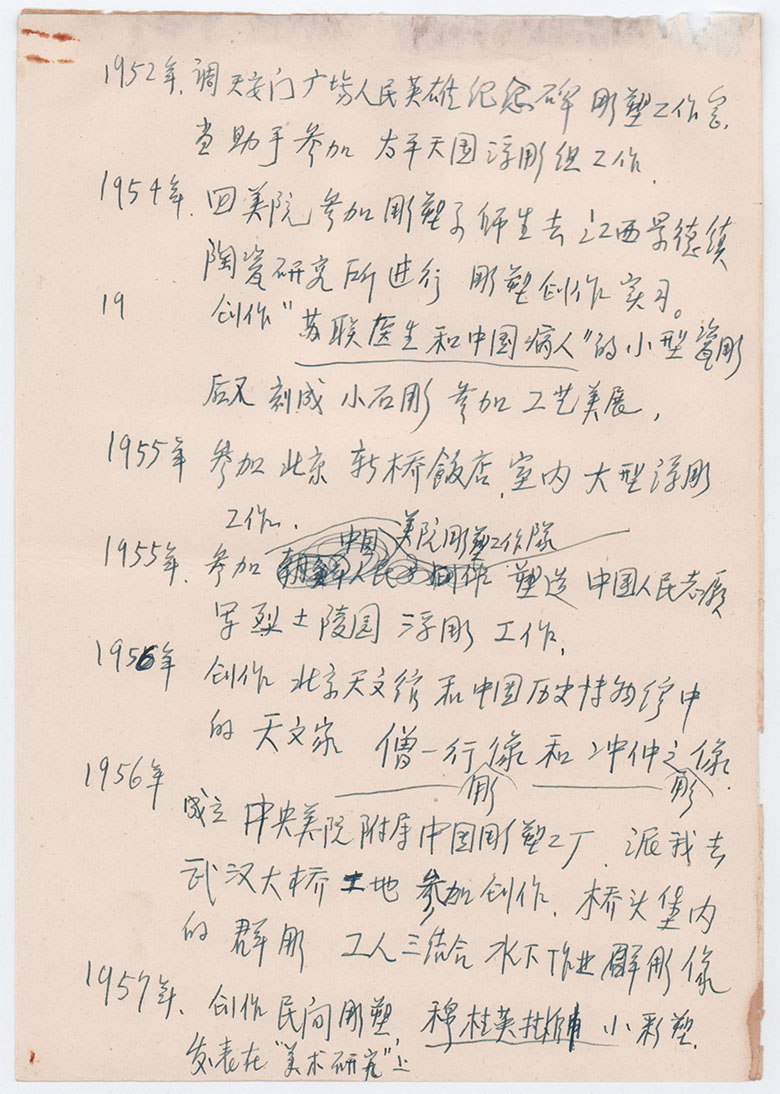 1952年. 调天安门广场人民英雄纪念碑雕塑工作室.
当助手参加 太平天国浮雕组工作.
1954年. 回美院参加雕塑系师生去江西景德镇
陶瓷研究所进行雕塑创作实习。
19 创作"苏联医生和中国病人"的小型瓷雕
后又刻成小石雕参加工艺美展,
1955年 参加北京新桥飯店.室内大型浮雕
工作.
中国美院雕塑工作队
1955年. 参加 塑造中国人民志愿
军烈士陵园浮雕工作.
1956年 创作北京天文馆和中国历史博物馆中
的天文家 僧一行像和冲仲之像.
雕 雕
1956年 成立中央美院附属中国雕塑工厂.派我去
武汉大桥工地参加创作.桥头堡内
的群雕 工人三结合水下作业群雕像
1957年. 创作民间雕塑 穆桂英挂帅 小彩塑.
发表在"美术研究"上